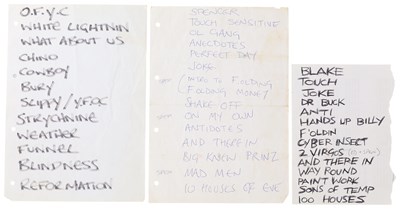 O.F.Y.C
WHITE LIGHTNIN
WHAT ABOUT US
CHINO
COWBOY
BURY
SLIPPY/Y.F.O.C
STRYCHNINE
WEATHER
FUNNEL
BLINDNESS
REFORMATION
SPENCER
TOUCH SENSITIVE
OL GANG
ANECDOTES
PERFECT DAY
JOKE
FOLDING
FOLDING MONEY
SHAKE-OFF
ON MY OWN
ANTIDOTES
AND THERE IN
BIG KNOW PRINZ
MAD MEN
10 HOUSES OF EVE
BLAKE
TOUCH
JOKE
DR BUCK
ANTI
HANDS UP BILLY
F'OLDIN
CYBER INSECT
2 VIRGOS
AND THERE IN
WAY ROUND
PAINT WORK
SONS OF TEMP
100 HOUSES